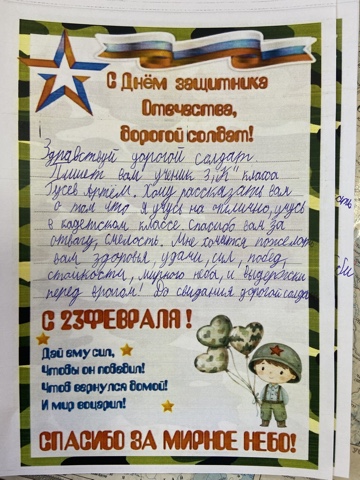 С Днём защитника
Отечества,
дорогой солдат!
Здравствуй дорогой солдат.
Пишет вам ученик 3 "К" класса
Гусев Артём. Хочу рассказать вам
о том что я учусь на отлично, учусь
в кадетском классе. Спасибо вам за
отвагу, смелость. Мне хочется пожелать
вам здоровья, удачи, сил, побед,
стойкости, мирного неба, и выдержки
перед врагом! До свидания дорогой солда
С 23ФЕВРАЛЯ!
Дай ему сил,
Чтобы он победил!
Чтоб вернулся домой!
И мир воцарил!
СПАСИБО ЗА МИРНОЕ НЕБО!